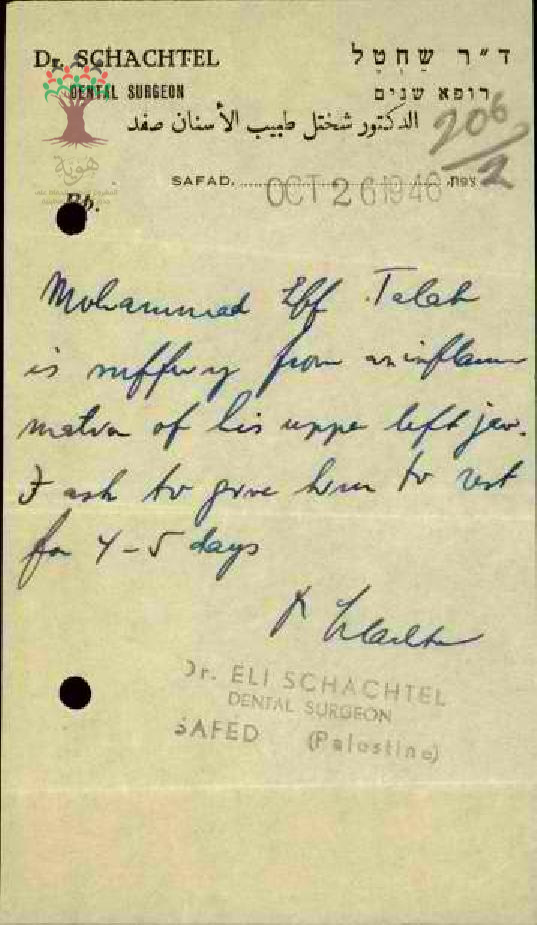 Dr. SCHACHTEL
ד״ר שַׁחְטֶל
DENTAL SURGEON
רופא שנים
الدكتور شختل طبيب الأسنان صفد
206/2
هوية
SAFAD, OCT 26 1946 צפת,
Rp.
Mohammad Eff. Talab
is suffering from an inflam
mation of his upper left jaw.
I ask to give him to rest
for 4-5 days
Dr. ELI SCHACHTEL
DENTAL SURGEON
SAFED (Palestine)